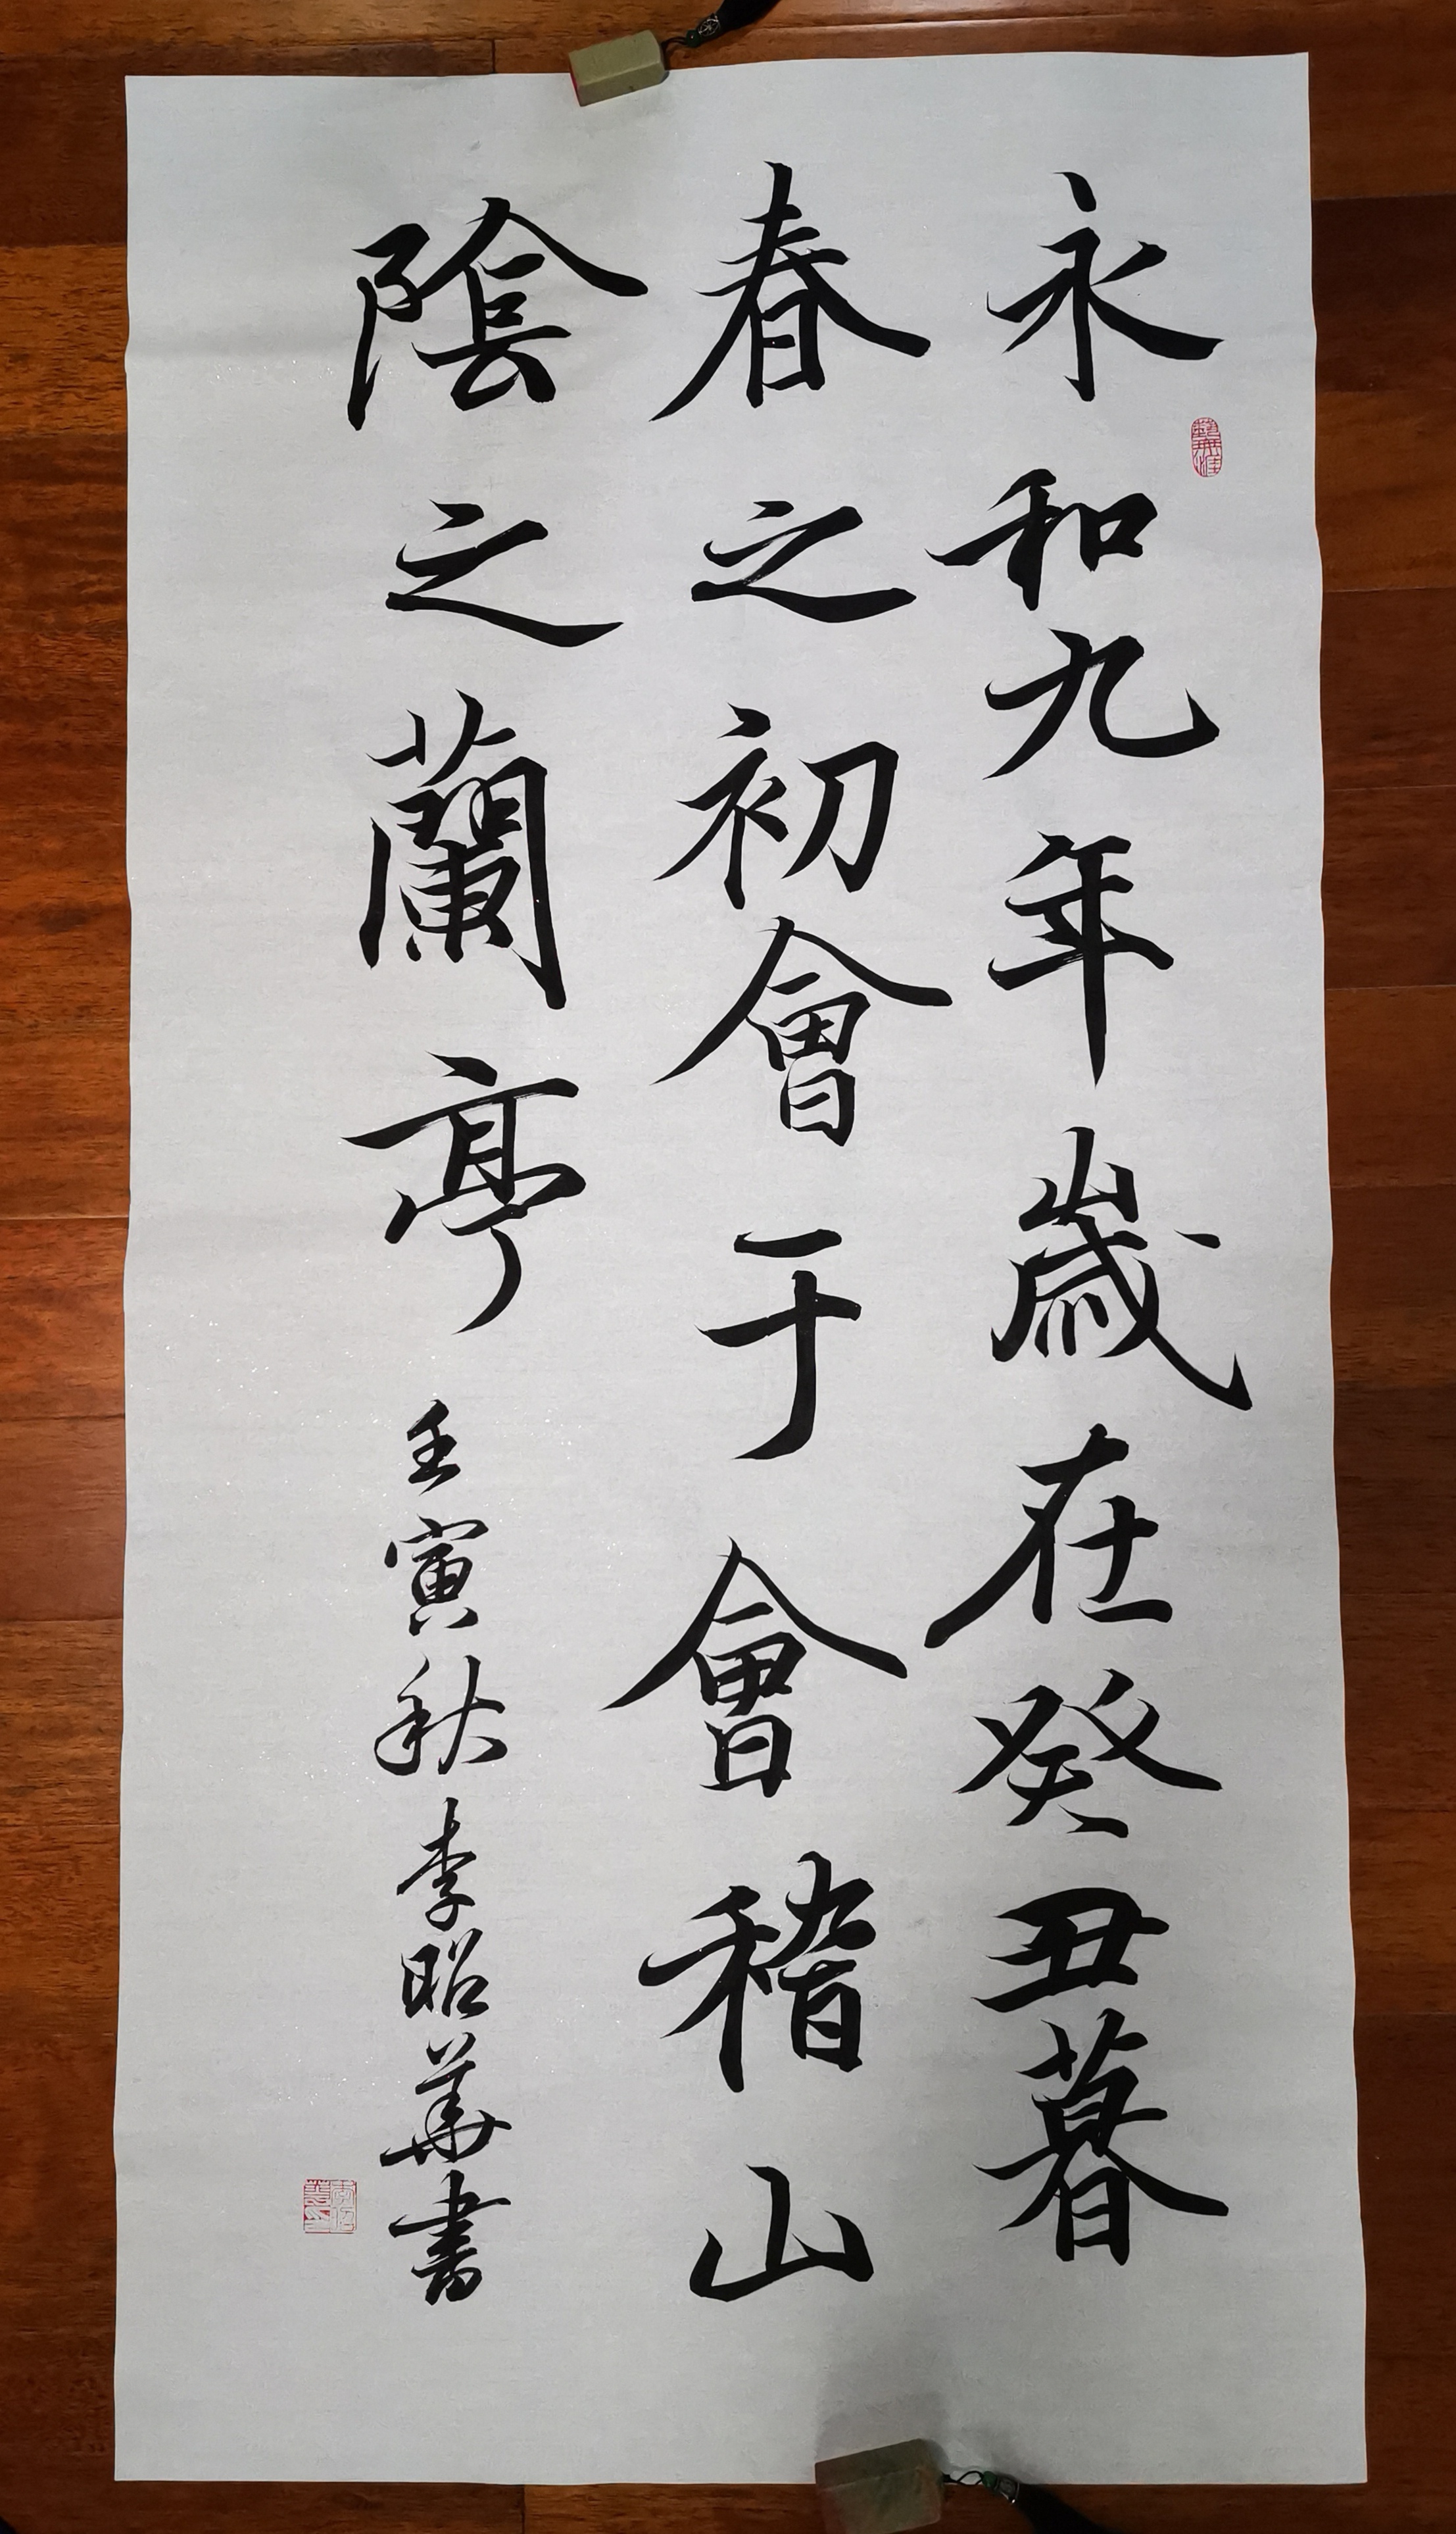 永和九年歲在癸丑暮
春之初會于會稽山
陰之蘭亭
壬寅秋李昭華書